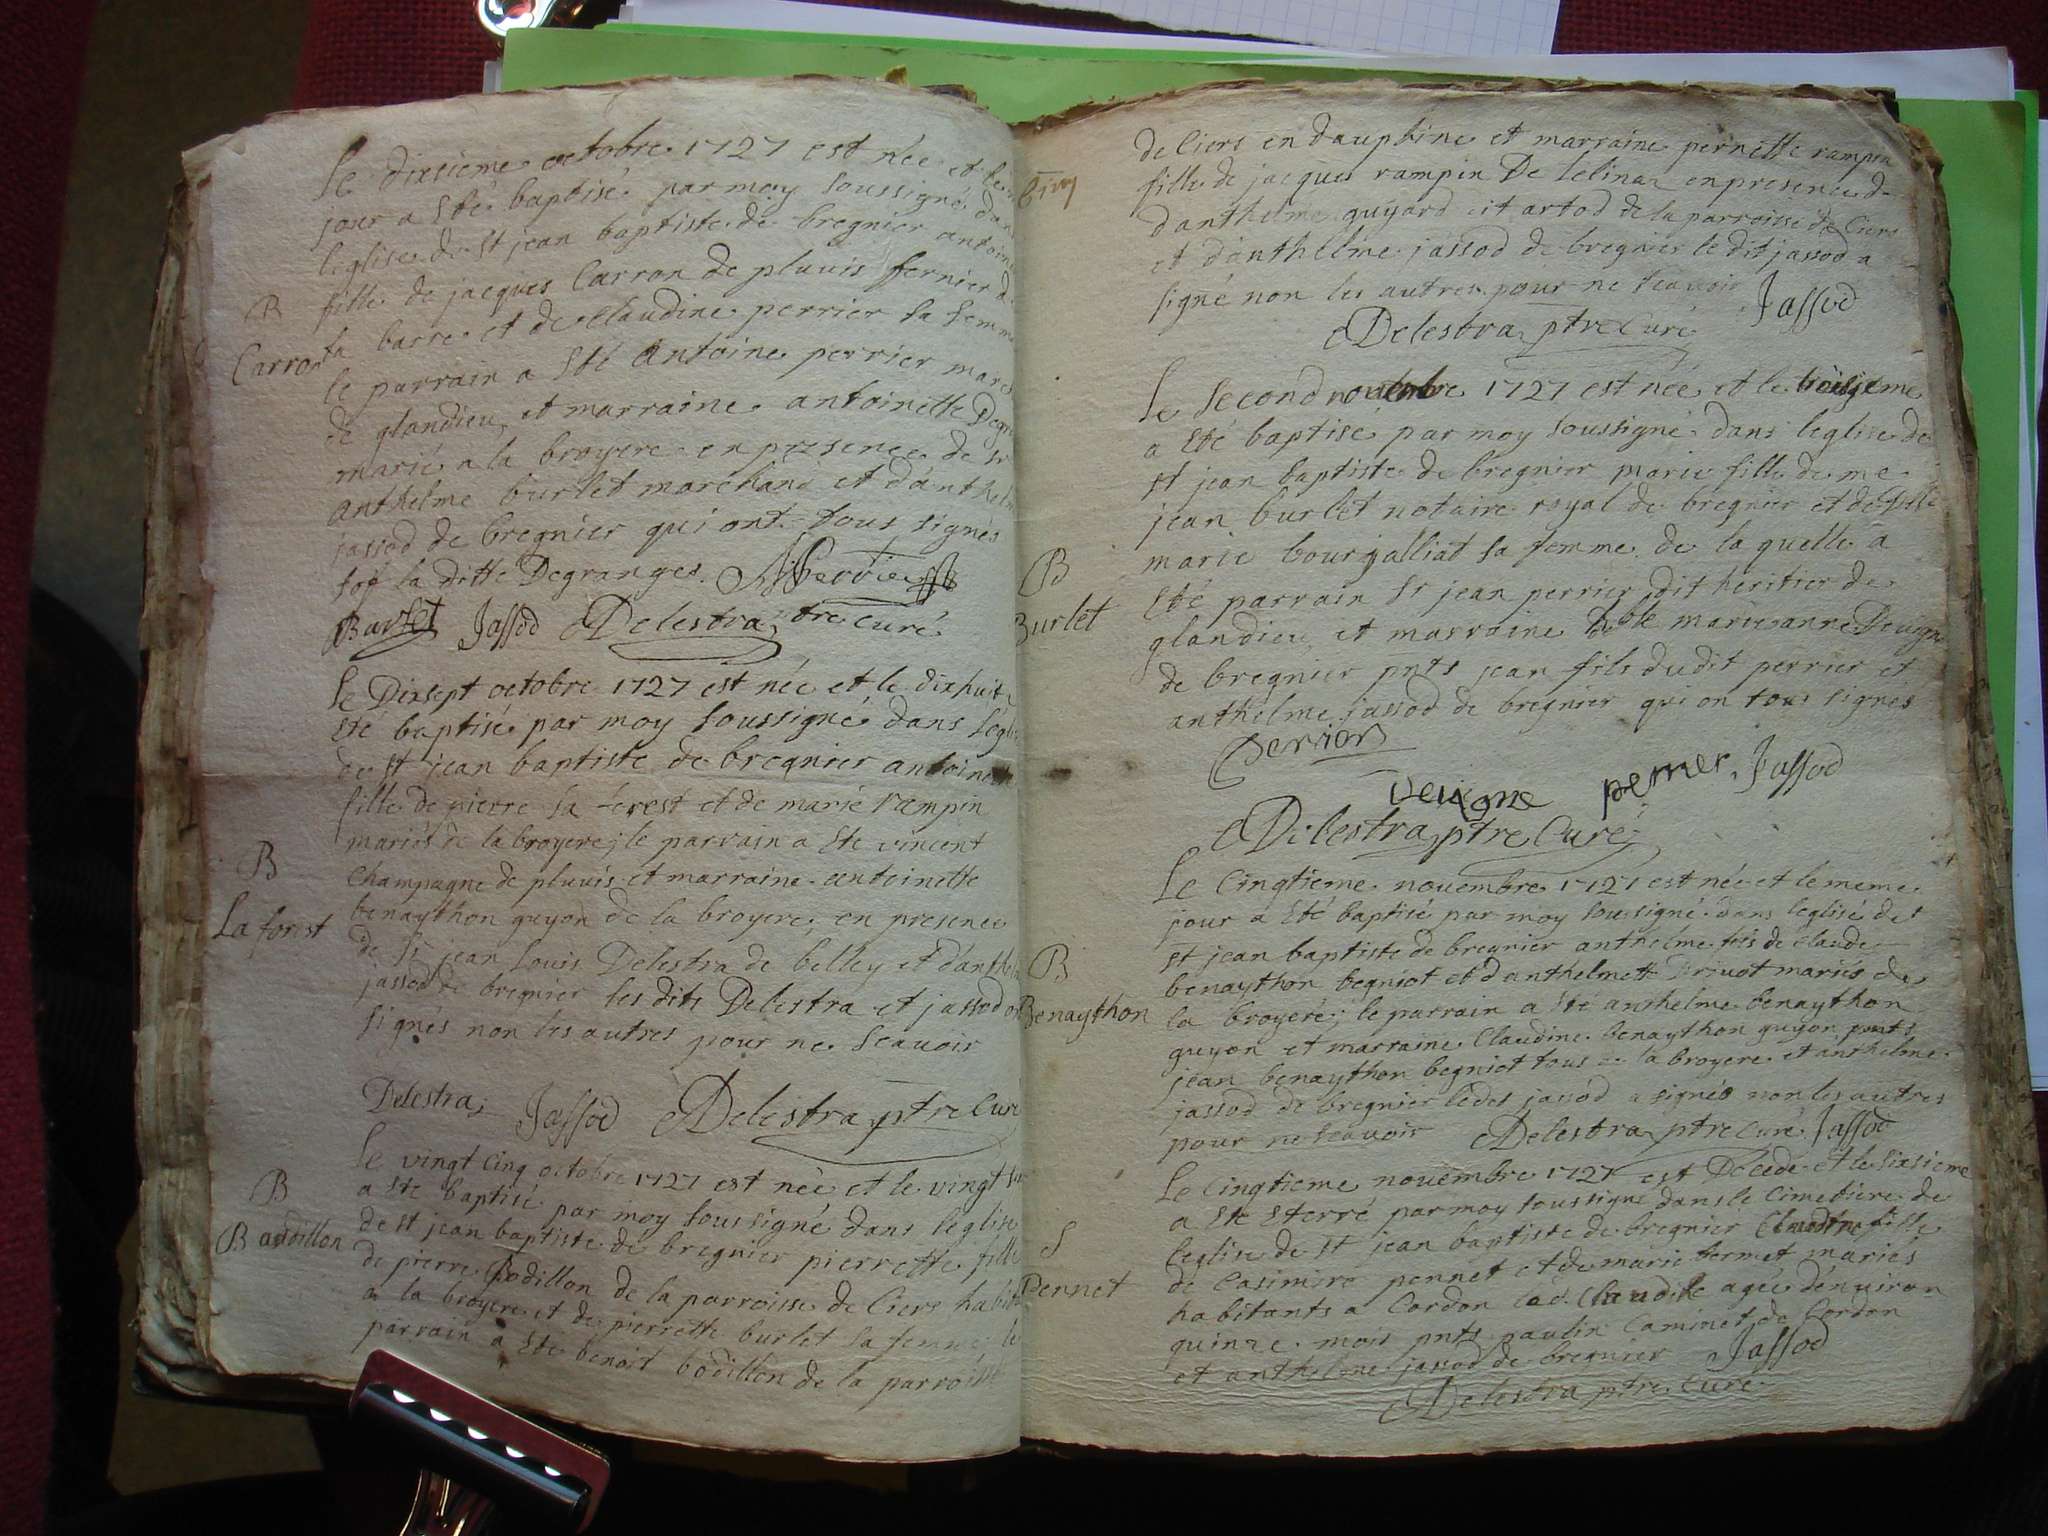 Le dixsieme octobre 1727 est née et le
jour a Eté baptisé par moy soussigné dans
leglise de st jean baptiste de bregnier antoine
fille de jacques Carron de pluuis fermier d
B
Carron
la barre et de Claudine perrier sa femme
le parrain a Eté antoine perrier marc
de glandieu et marraine antoinette Degr
marié a la broyere en presence de sr
anthelme burlet marchand et d'anthel
jassod de bregnier qui ont tous signés
sof la ditte Degranges. APerrier
Burlet Jassod Delestra ptre curé
Le Dixsept octobre 1727 est née et le dixhuit a
Eté baptisé par moy soussigné dans l'egli
de st jean baptiste de bregnier antoine
fille de pierre la forest et de marie rampin
mariés de la broyere; le parrain a Ete vincent
B
La forest
champagne de pluuis et marraine antoinette
benaython guyon de la broyere, en presence
de sr jean Louis Delestra de belley et d'anthel
jassod de bregnier les dits Delestra et jassod on
signés non les autres pour ne scauoir
Delestra Jassod Delestra ptre Curé
Le vingt cinq octobre 1727 est née et le vingt six
B
Baudillon
a Ete baptisé par moy soussigné dans leglise
de st jean baptiste de bregnier pierrette fille
de pierre Bodillon de la parroisse de Ciers habit
a la broyere et de pierrette burlet sa femme; le
parrain a Ete benoit bodillon de la parroisse
de Ciers en dauphine et marraine pernette rampin
fille de jacques rampin De Lelinaz en presence d
d'anthelme guyard dit artod de la parroisse de Ciers
et d'anthelme jassod de bregnier le dit jassod a
signé non les autres pour ne scauoir Jassod
Delestra ptre Curé
Le second nouembre 1727 est née et le troisieme
a Eté baptisé par moy soussigné dans leglise de
st jean baptiste de bregnier marie fille de me
jean burlet notaire royal de bregnier et de
B
Burlet
marie bourjalliat sa femme de la quelle a
Eté parrain sr jean perrier dit heritier de
glandieu et marraine marieanne Deuigne
de bregnier pnts jean fils dudit perrier et
anthelme jassod de bregnier qui on tous signés
Perrier
Deuigne perrier Jassod
Delestra ptre Curé
Le Cinqtieme nouembre 1727 est née et le meme
jour a Eté baptisé par moy soussigné dans leglise de
st jean baptiste de bregnier anthelme fils de claude
B
Benaython
benaython begniot et d'anthelmette Driuot mariés de
la broyere; le parrain a Ete anthelme benaython
guyon et marraine Claudine benaython guyon pnts
jean benaython begniot tous de la broyere et anthelme
jassod de bregnier ledet jassod a signés non les autres
pour ne scauoir Delestra ptre Curé Jassod
Le Cinqtieme nouembre 1727 est Décedé et le sixsieme
a Eté Eterré par moy soussigné dans le Cimetiere de
S
Pennet
leglise de st jean baptiste de bregnier Claudine fille
de Casimire pennet et de marie bermet mariés
habitants a Cordon lad. Claudine agée denuiron
quinze mois pnts paulin Caminet de Cordon
et anthelme jassod de bregnier Jassod
Delestra ptre Curé